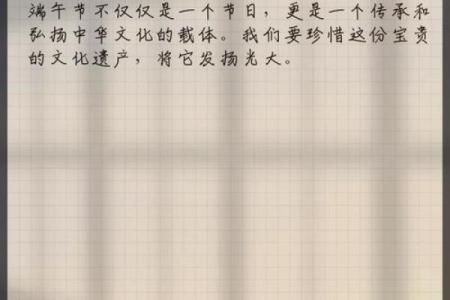 端午节不仅仅是一个节日，更是一个传承和
弘扬中华文化的载体。我们要珍惜这份宝贵
的文化遗产，将它发扬光大。